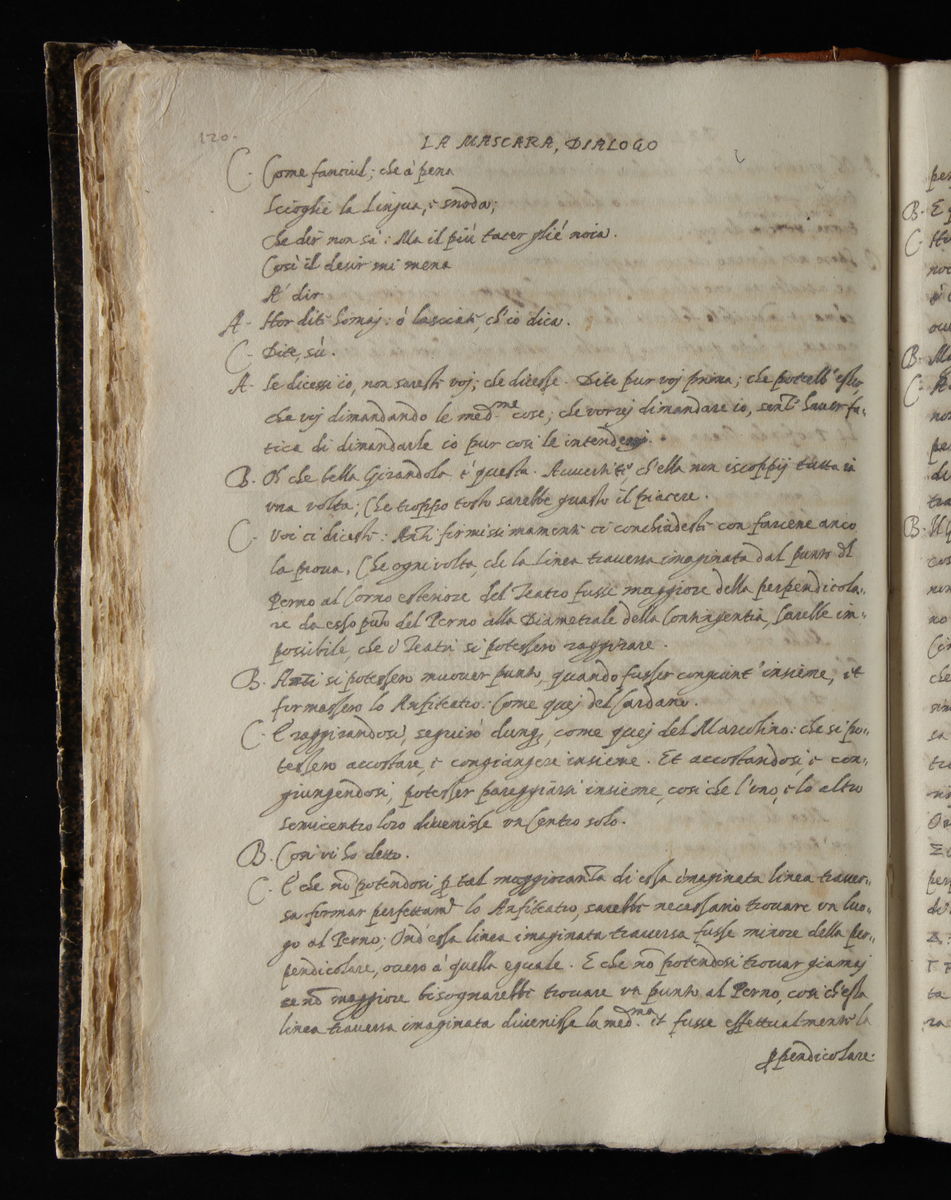 120.
LA MASCARA, DIALOGO
C. Come fanciul; che à pena
Scioglie la Lingua, e snoda;
che dir non sà: Ma il più tacer gliè noia.
Così il desir mi mena
A' dir
A. Hor dite homaj: ò lasciate, ch'io dica.
C. Dite, sù.
A. Se dicessi io, non sareste voj; che dicesse. Dite pur voj prima; che potrebb' esser
che voj dimandando le med.me cose; che vorrej dimandare io, senza haver fa-
tica di dimandarle io pur così le intenderej.
B. Oh che bella Girandola è questa. Avvertite, ch'ella non iscoppij tutta in
una volta; Che troppo tosto sarebbe guasto il piacere.
C. Voi ci diceste: Anzi fermissimamente ci conchiudeste con farcene anco
la prova, Che ogni volta, che la linea traversa imaginata dal punto del
Perno al Corno esteriore del Teatro fusse maggiore della perpendicola-
re da esso punto del Perno alla Diametrale della Contingentia, sarebbe im-
possibile, che i Teatri si potessero raggirare.
B. Anzi si potessero muover punto, quando fusser congiunt' insieme, et
formassero lo Anfiteatro: Come quej del Cardano.
C. E raggirandosi, seguirò dunq, come quej del Marcolino: che si po-
tessero accostare, e congiungere insieme. Et accostandosi, e con-
giungendosi, potesser pareggiarsi insieme, così che l'uno, e lo altro
semicentro loro divenisse un Centro solo.
B. Così vi ho detto.
C. E che nõ potendosi p tal maggioranza di essa imaginata linea traver-
sa formar perfettamte lo Anfiteatro, sarebbe necessario trovare un luo-
go al Perno; Ond'essa linea imaginata traversa fusse minore della per-
pendicolare, overo à quella eguale. E che nõ potendosi trovar giamaj
se nõ maggiore bisognarebbe trovare un punto al Perno, così ch'essa
linea traversa imaginata divenisse la med.ma et fusse effettualmente la
ppendicolare.